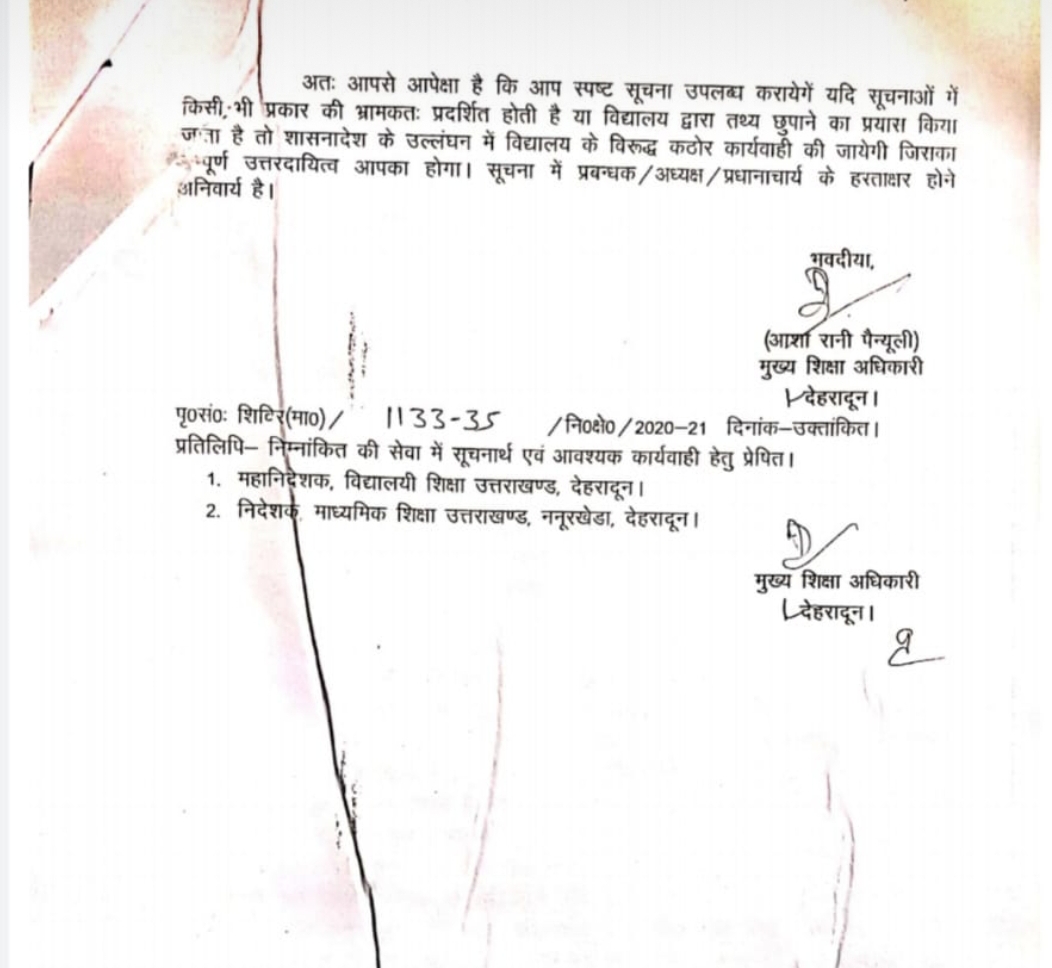 अतः आपसे आपेक्षा है कि आप स्पष्ट सूचना उपलब्ध करायेगें यदि सूचनाओं में
किसी भी प्रकार की भ्रामकतः प्रदर्शित होती है या विद्यालय द्वारा तथ्य छुपाने का प्रयास किया
जाता है तो शासनादेश के उल्लंघन में विद्यालय के विरूद्ध कठोर कार्यवाही की जायेगी जिसका
पूर्ण उत्तरदायित्व आपका होगा। सूचना में प्रबन्धक/अध्यक्ष/प्रधानाचार्य के हस्ताक्षर होने
अनिवार्य है।
भवदीया,
(आशा रानी पैन्यूली)
मुख्य शिक्षा अधिकारी
देहरादून।
पृ०सं०: शिविर(मा०)/ 1133-35 /नि०क्षे०/2020-21 दिनांक-उक्तांकित।
प्रतिलिपि- निम्नांकित की सेवा में सूचनार्थ एवं आवश्यक कार्यवाही हेतु प्रेषित।
1. महानिदेशक, विद्यालयी शिक्षा उत्तराखण्ड, देहरादून।
2. निदेशक, माध्यमिक शिक्षा उत्तराखण्ड, ननूरखेडा, देहरादून।
मुख्य शिक्षा अधिकारी
देहरादून।